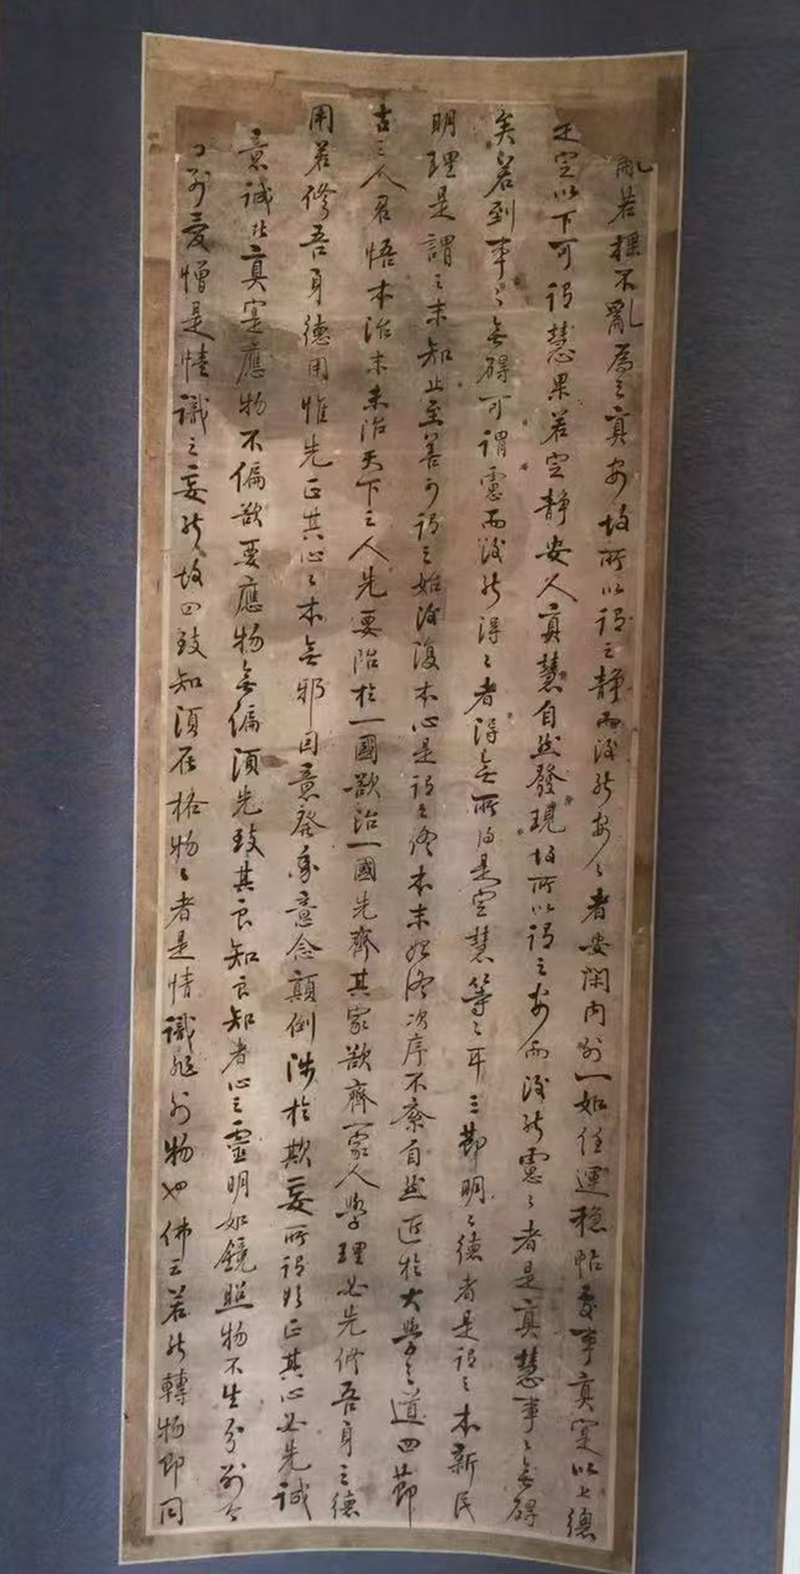 亂若擾不亂為之真安故所以謂之靜而後能安々者安閑內外一如任運穩帖處事真寔以上德
是定以下可謂慧果若定靜安人真慧自然發現故所以謂之安而後能慮々者是真慧事々無碍
矣若到事々無碍可謂慮而後能得々者得無所得是定慧等々耳三節明々德者是謂之本新民
明理是謂之末知止至善可謂之始後復本心是謂之終本末始終次序不紊自然近於大學之道四節
古之人君悟本治末未治天下之人先要治於一國欲治一國先齊其家欲齊一家人學理必先修吾身之德
用若修吾身德用惟先正其心々本無邪因意發來意念顛倒涉於欺妄所謂將正其心必先誠
意誠此真寔應物不偏欲要應物無偏須先致其良知良知者心之靈明如鏡照物不生分別
了別愛憎是情識之妄能故曰致知須在格物々者是情識非外物也佛云若能轉物即同